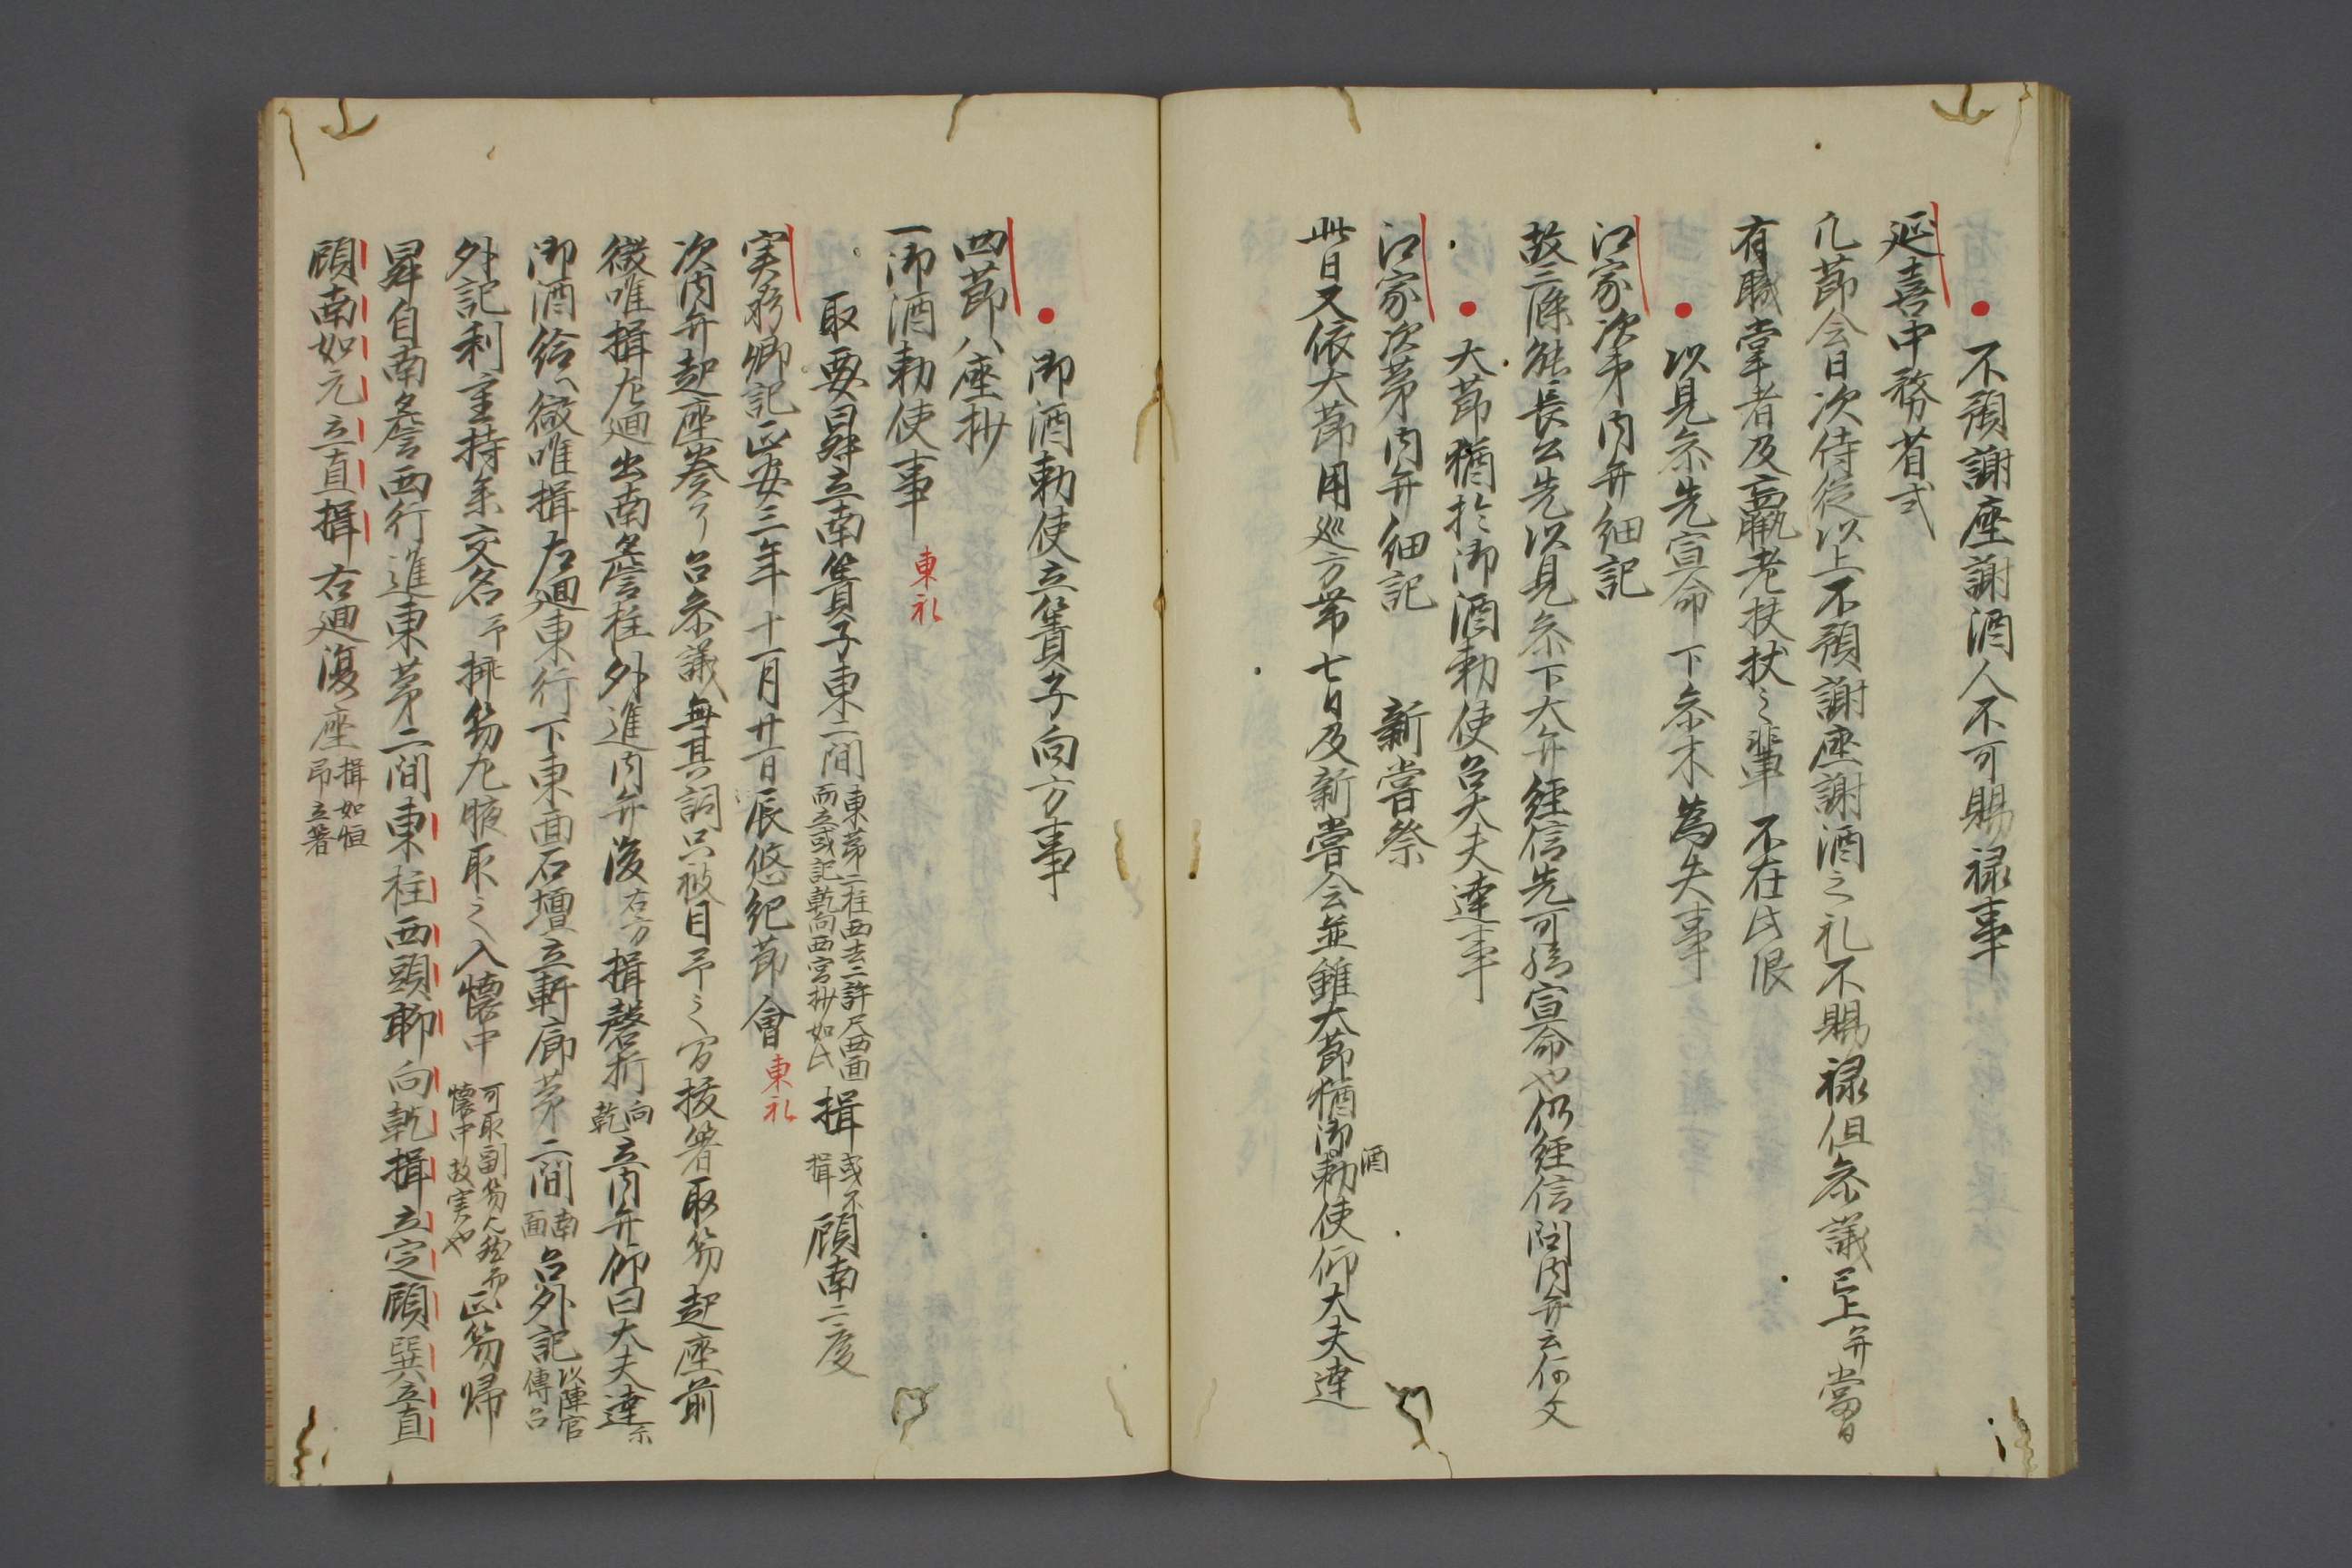 不預謝座謝酒人不可賜禄事
延喜中務省式
凡節会日次侍従以上不預謝座謝酒之礼不賜禄但参議已上并當日
有職掌者及羸老扶杖之輩不在此限
以見参先宣命下参木為失事
江家次第内弁細記
故三條能長公先以見参下大弁経信先可給宣命也仍経信問内弁云何文
大節猶於御酒勅使召大夫達事
江家次第内弁細記 新嘗祭
此日又依大節用巡方帯七日及新嘗会並雖大節猶御酒勅使仰大夫達
御酒勅使立簀子向方事
四節八座抄
一御酒勅使事 東礼
取要昇立南簀子東二間東第二柱西去二許尺西面而立或記乾向西宮抄如此揖或不揖顧南二度
実躬卿記正安三年十一月廿一日辰悠紀節會 東礼
次内弁起座奏了召参議無其詞只被目予之間抜箸取笏起座前
微唯揖左廻出南簷柱外進内弁後右方揖磬折向乾立内弁仰曰大夫達示
御酒給へ微唯揖右廻東行下東面石壇立軒廊第二間南面召外記以陣官傳召
外記利重持参交名予挿笏左腋取之入懐中可取副笏懐中故実也正笏帰
昇自南簷西行進東第二間東柱西頭聊向乾揖立定顧巽立直
顧南如元立直揖右廻復座揖如恒昂立箸